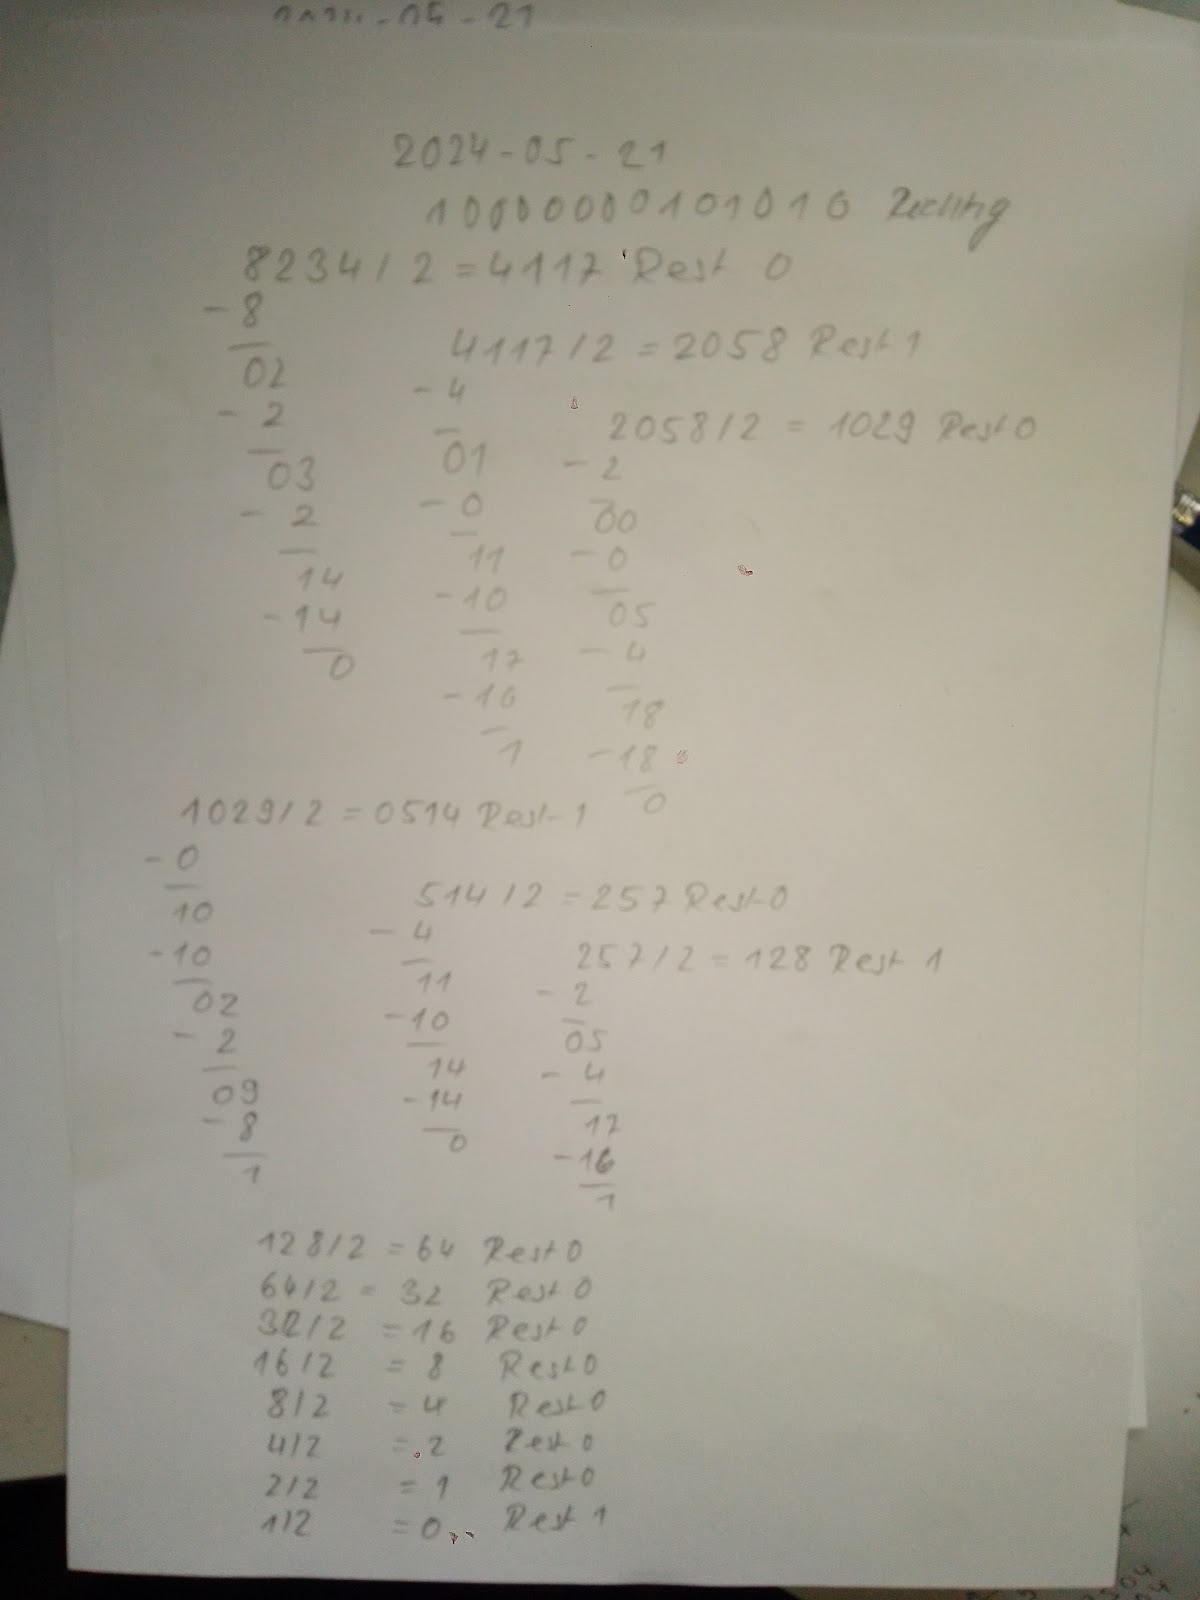 2024-05-21
10000000101010 Richtig
8234/2 = 4117 Rest 0
-8
02
-2
03
-2
14
-14
0
4117/2 = 2058 Rest 1
-4
01
-0
11
-10
17
-16
1
2058/2 = 1029 Rest 0
-2
00
-0
05
-4
18
-18
0
1029/2 = 0514 Rest 1
-0
10
-10
02
-2
09
-8
1
514/2 = 257 Rest 0
-4
11
-10
14
-14
0
257/2 = 128 Rest 1
-2
05
-4
17
-16
1
128/2 = 64 Rest 0
64/2 = 32 Rest 0
32/2 = 16 Rest 0
16/2 = 8 Rest 0
8/2 = 4 Rest 0
4/2 = 2 Rest 0
2/2 = 1 Rest 0
1/2 = 0 Rest 1